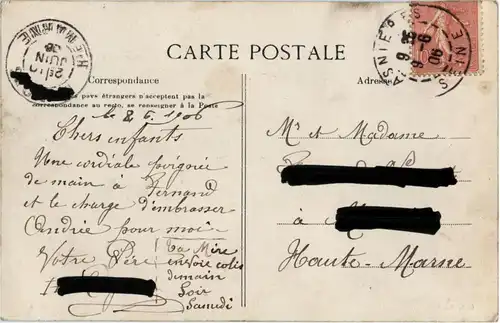 CARTE POSTALE
Correspondance
Adresse
pays étrangers n'acceptent pas la
correspondance au recto, se renseigner à la Poste
le 8. 6. 1906
Chers enfants
Une cordiale poignée
de main à Fernand
et le charge d'embrasser
Andrée pour moi.
Votre Père
La Mère
envoie colis
demain
Soir
Samedi
Mr et Madame
à
Haute-Marne
ASNIERES
9 35
9-6
06
SEINE
JUIN
06
HTE MARNE